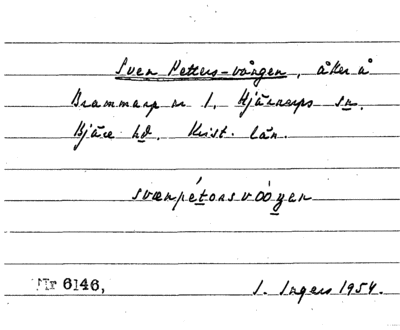 Sven Petters-vången, åker å
Brammarp nr 1, Hjärnarps sn.
Bjäre hd. Krist. län.
svænpétɔrsvóóŋen
Nr 6146,
I. Ingers 1954.